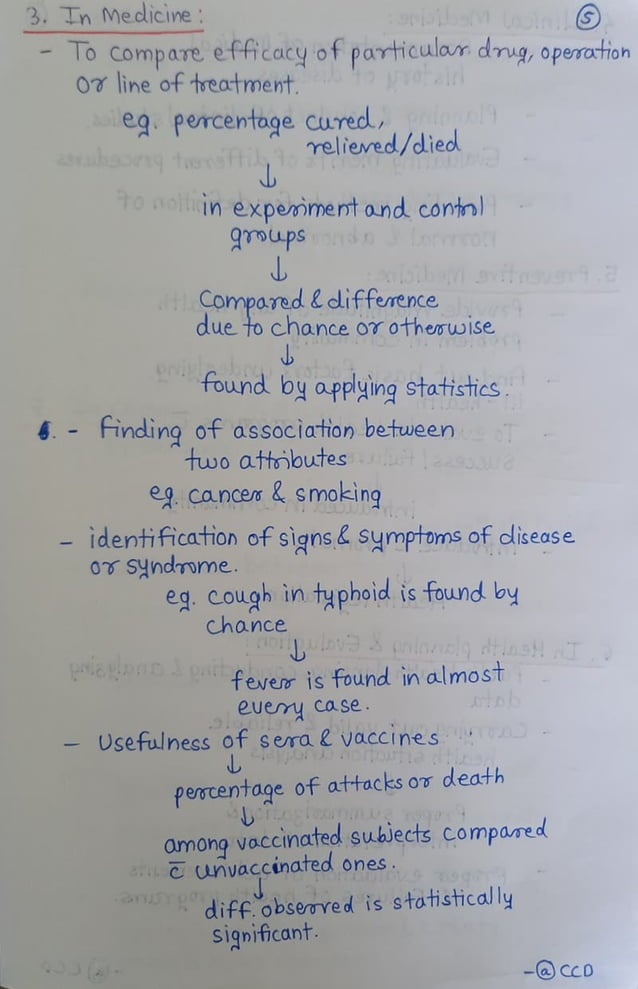 3. In Medicine :
5
- To compare efficacy of particular drug, operation
or line of treatment.
eg. percentage cured,
relieved/died
↓
in experiment and control
groups
↓
Compared & difference
due to chance or otherwise
↓
found by applying statistics.
- finding of association between
two attributes
eg. cancer & smoking
- identification of signs & symptoms of disease
or syndrome.
eg. cough in typhoid is found by
chance
↓
fever is found in almost
every case.
- Usefulness of sera & vaccines.
↓
percentage of attacks or death
↓
among vaccinated subjects compared
c̅ unvaccinated ones.
↓
diff. observed is statistically
significant.
-@CCD